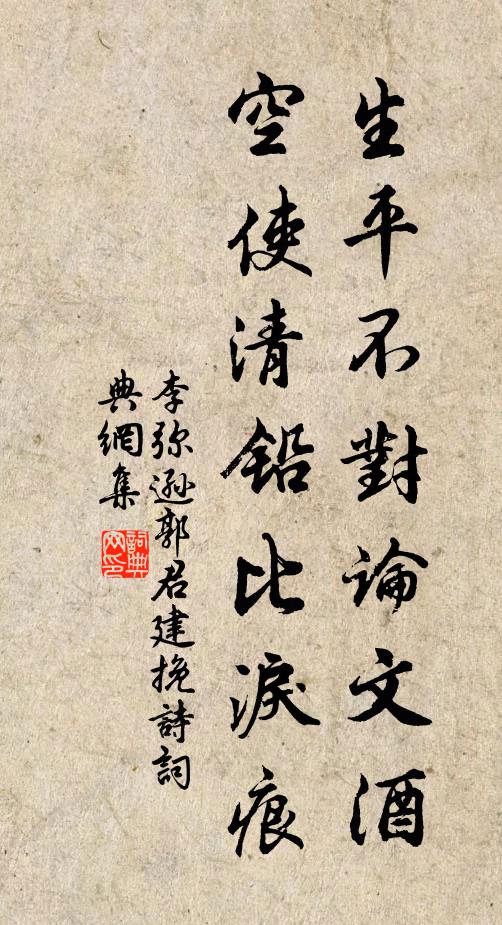 生平不對論文酒
空使清鉛比淚痕
李弥遜郭君建挽詩詞
典網集
詞典网印